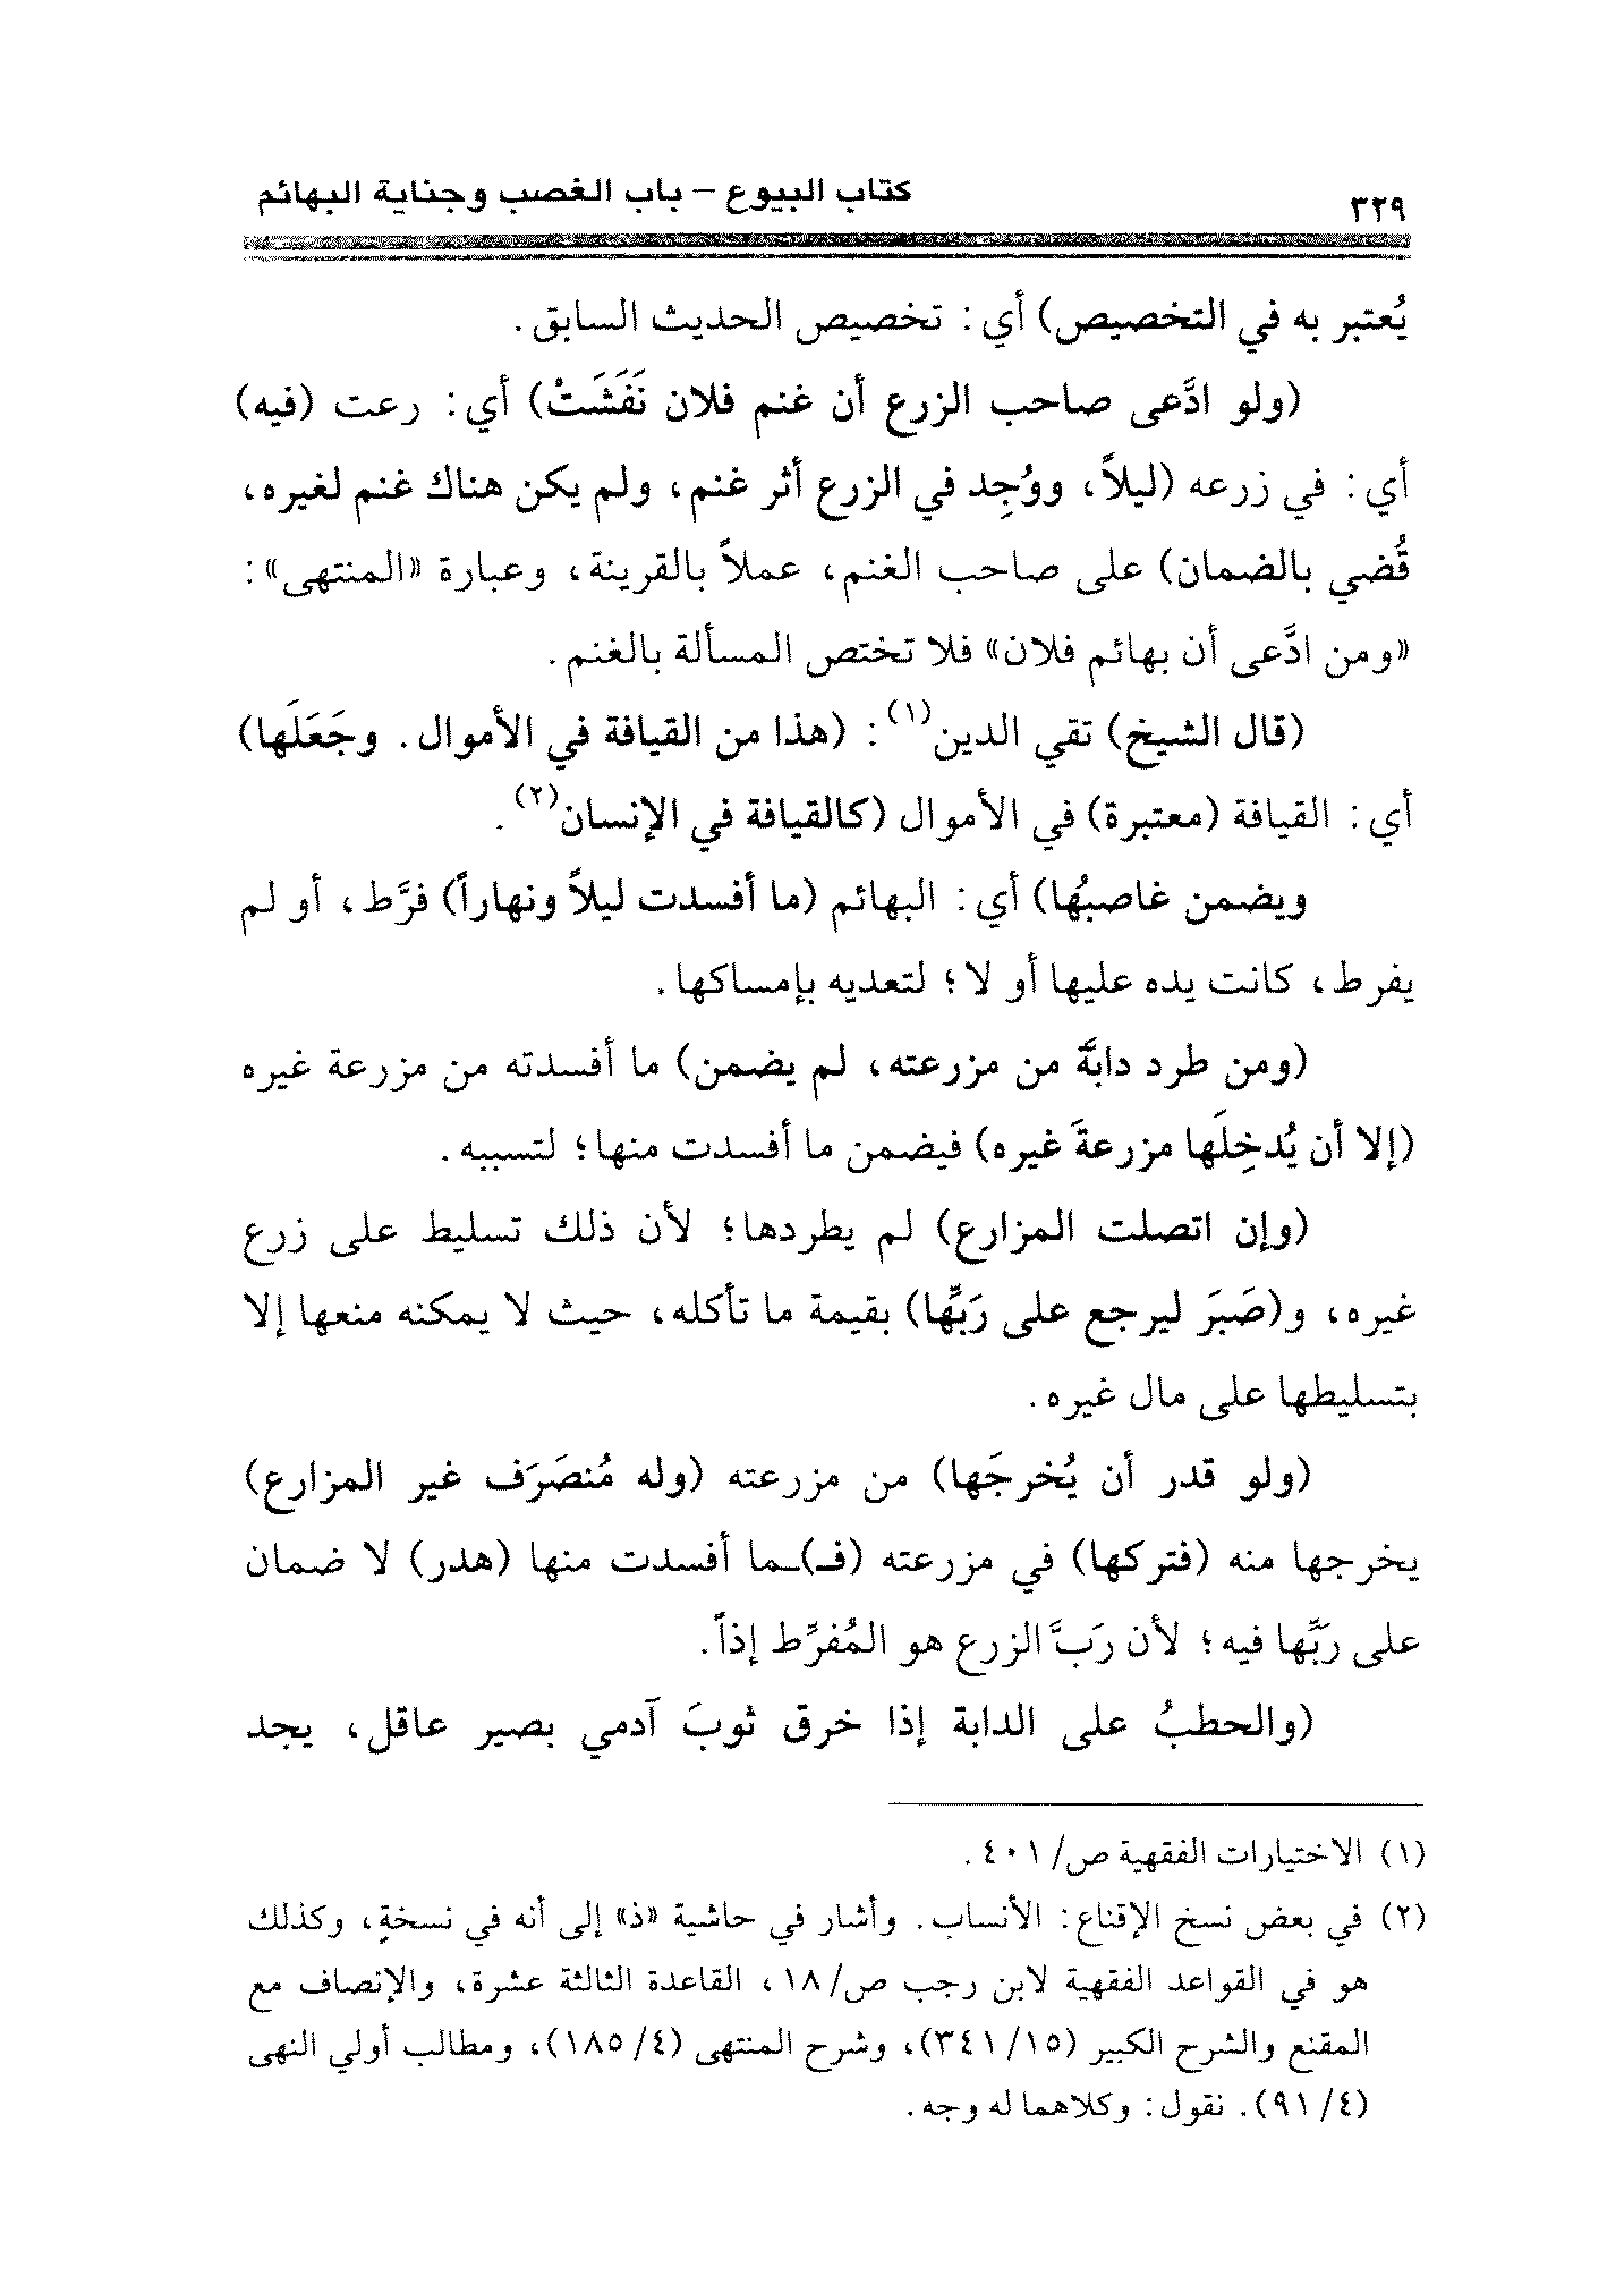 كتاب البيوع – باب الغصب وجناية البهائم
٣٢٩
يُعتبر به في التخصيص) أي: تخصيص الحديث السابق.
(ولو ادَّعى صاحب الزرع أن غنم فلان نَفَشَتْ) أي: رعت (فيه)
أي: في زرعه (ليلاً، ووُجِد في الزرع أثر غنم، ولم يكن هناك غنم لغيره،
قُضي بالضمان) على صاحب الغنم، عملاً بالقرينة، وعبارة «المنتهى»:
«ومن ادَّعى أن بهائم فلان» فلا تختص المسألة بالغنم.
(قال الشيخ) تقي الدين(١): (هذا من القيافة في الأموال. وجَعَلَها)
أي: القيافة (معتبرة) في الأموال (كالقيافة في الإنسان(٢).
ويضمن غاصبُها) أي: البهائم (ما أفسدت ليلاً ونهاراً) فرَّط، أو لم
يفرط، كانت يده عليها أو لا؛ لتعديه بإمساكها.
(ومن طرد دابةً من مزرعته، لم يضمن) ما أفسدته من مزرعة غيره
(إلا أن يُدخِلَها مزرعةَ غيره) فيضمن ما أفسدت منها؛ لتسببه.
(وإن اتصلت المزارع) لم يطردها؛ لأن ذلك تسليط على زرع
غيره، و(صَبَرَ ليرجع على رَبِّها) بقيمة ما تأكله، حيث لا يمكنه منعها إلا
بتسليطها على مال غيره.
(ولو قدر أن يُخرجَها) من مزرعته (وله مُنصَرَف غير المزارع)
يخرجها منه (فتركها) في مزرعته (فـ)ـما أفسدت منها (هدر) لا ضمان
على رَبِّها فيه؛ لأن رَبَّ الزرع هو المُفرِّط إذاً.
(والحطبُ على الدابة إذا خرق ثوبَ آدمي بصير عاقل، يجد
(١) الاختيارات الفقهية ص/٤٠١.
(٢) في بعض نسخ الإقناع: الأنساب. وأشار في حاشية «ذ» إلى أنه في نسخةٍ، وكذلك
هو في القواعد الفقهية لابن رجب ص/١٨، القاعدة الثالثة عشرة، والإنصاف مع
المقنع والشرح الكبير (٣٤١/١٥)، وشرح المنتهى (١٨٥/٤)، ومطالب أولي النهى
(٩١/٤). نقول: وكلاهما له وجه.